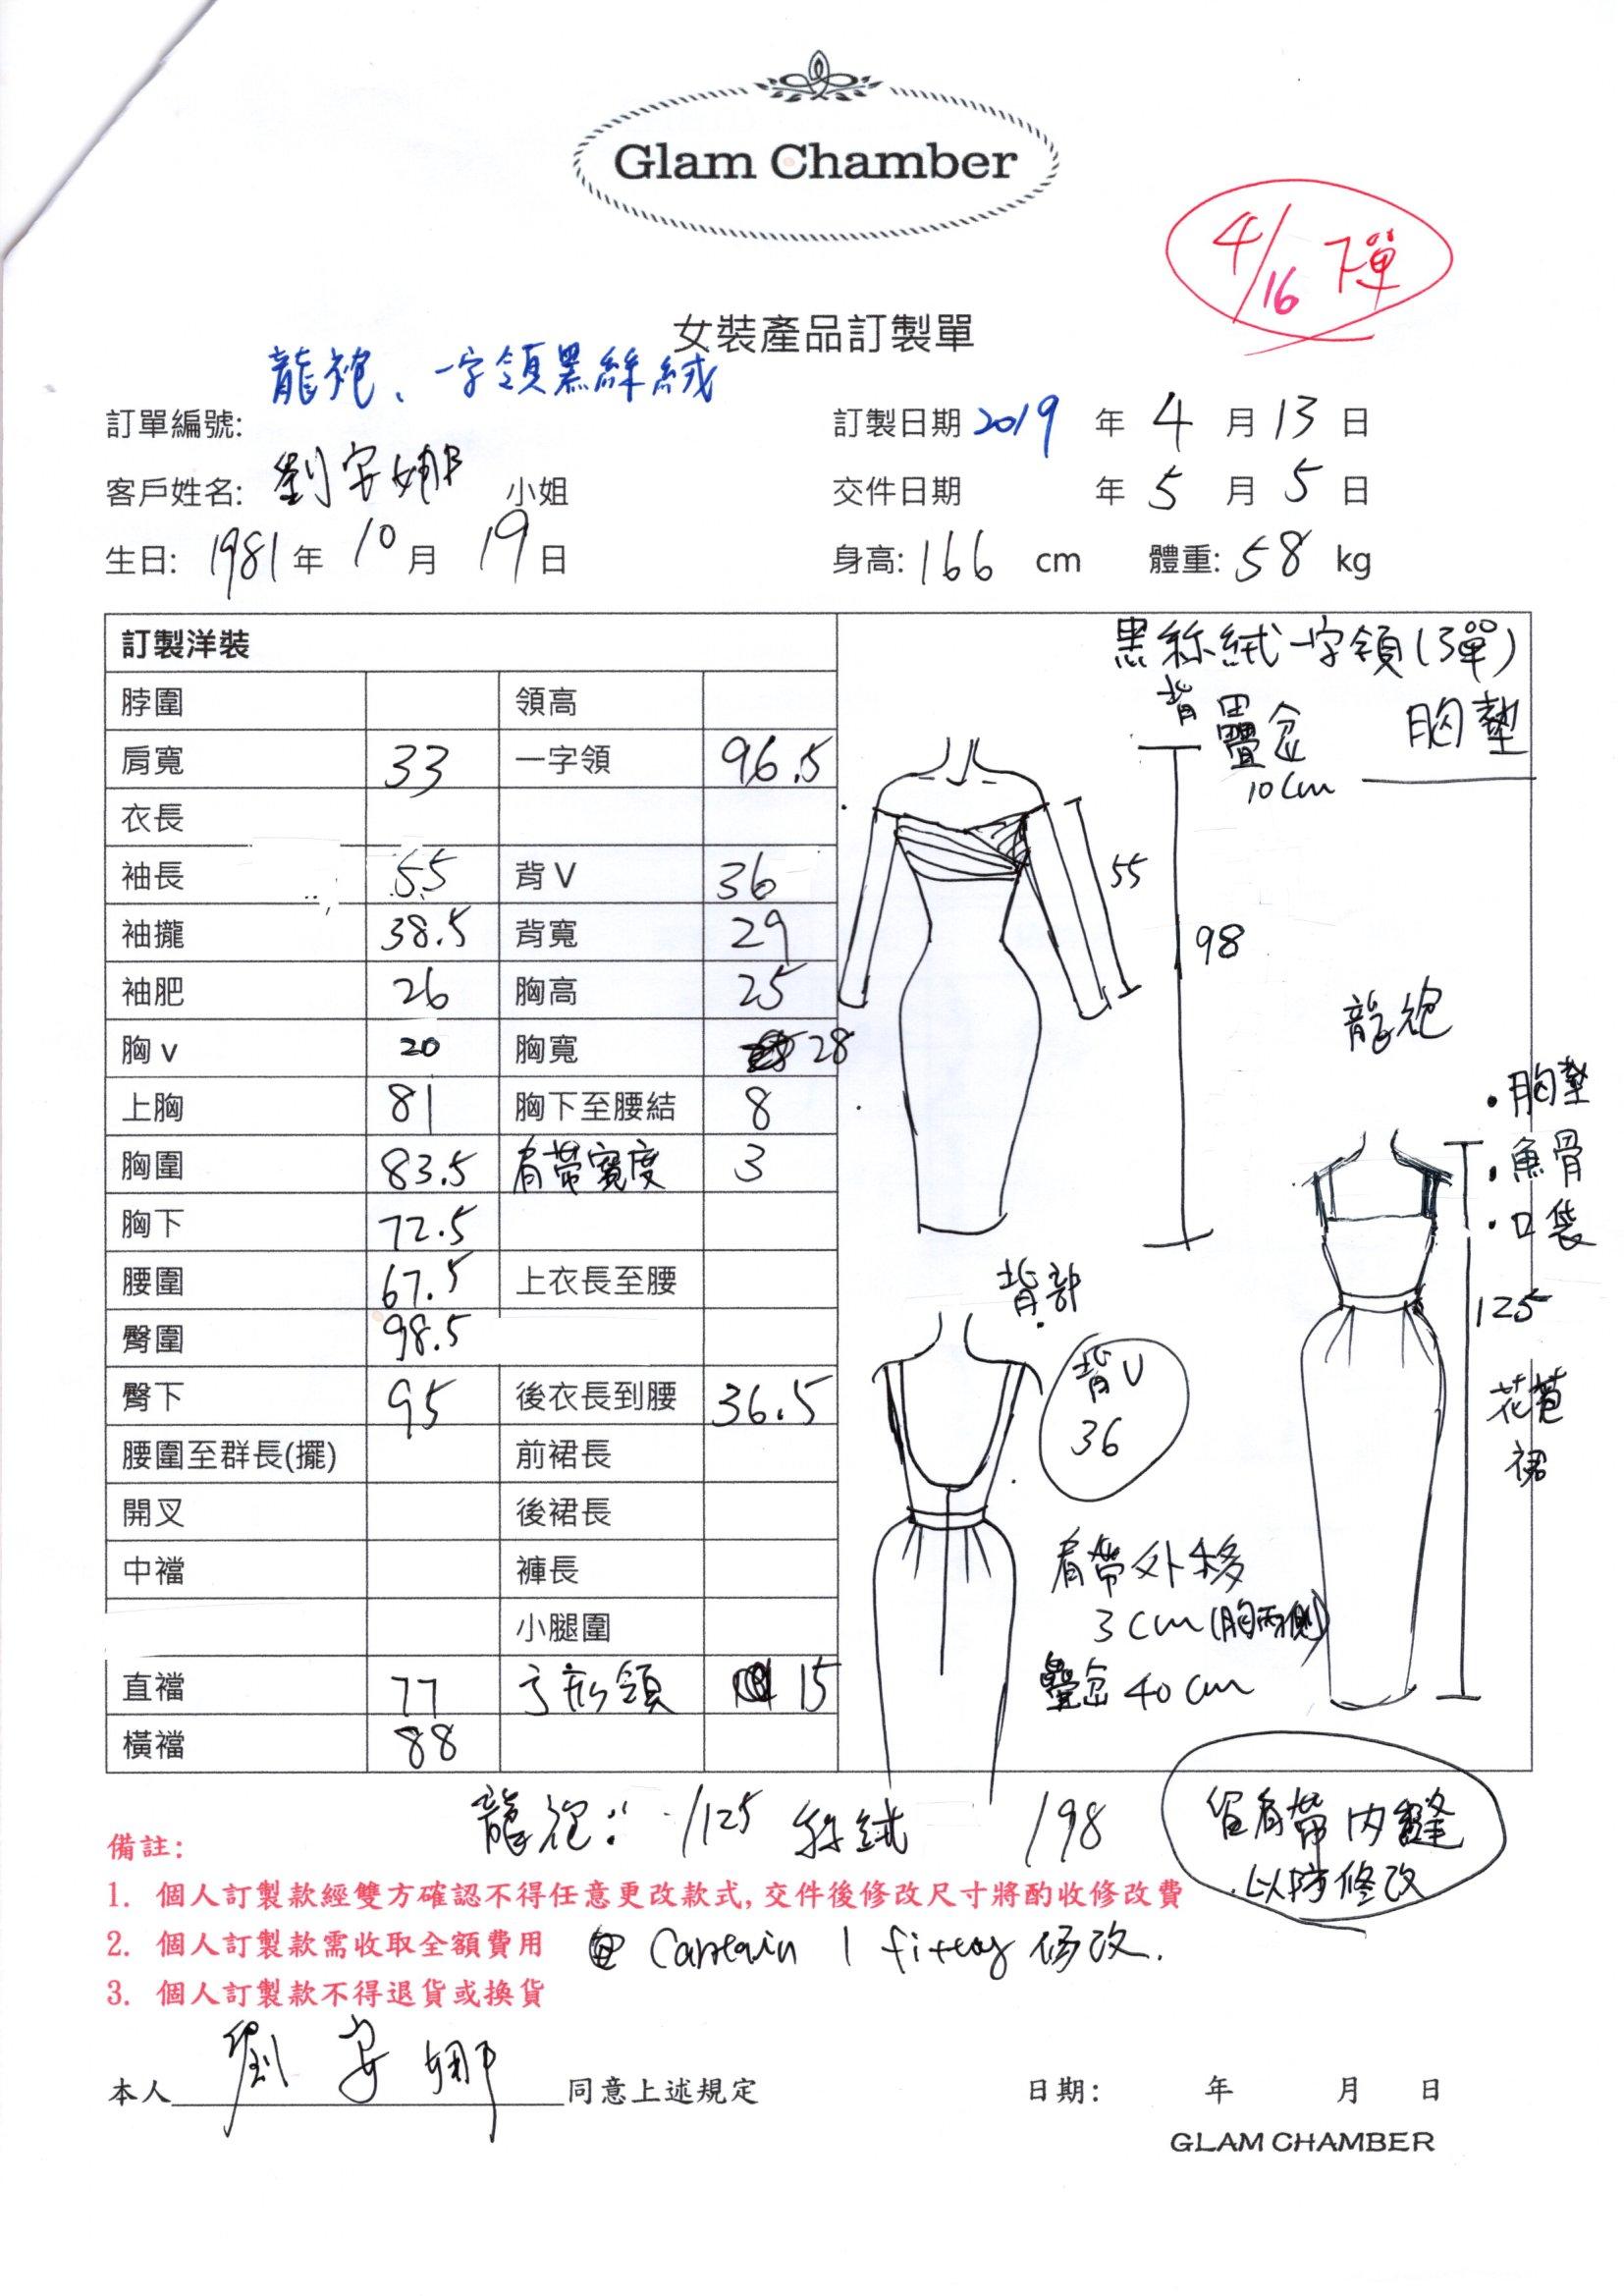 Glam Chamber
4/16 下單
女裝產品訂製單
龍袍、一字領黑絲絨
訂單編號:
訂製日期 2019 年 4 月 13 日
客戶姓名: 劉安娜 小姐
交件日期 年 5 月 5 日
生日: 1981 年 10 月 19 日
身高: 166 cm 體重: 58 kg
訂製洋裝
脖圍 領高
肩寬 33 一字領 96.5
衣長
袖長 55 背V 36
袖攏 38.5 背寬 29
袖肥 26 胸高 25
胸v 20 胸寬 28
上胸 81 胸下至腰結 8
胸圍 83.5 肩帶寬度 3
胸下 72.5
腰圍 67.5 上衣長至腰
臀圍 98.5
臀下 95 後衣長到腰 36.5
腰圍至群長(擺) 前裙長
開叉 後裙長
中襠 褲長
小腿圍
直襠 77 方形領 15
橫襠 88
黑絲絨一字領(彈)
背疊 10cm
胸墊
55
98
龍袍
·胸墊
·魚骨
·口袋
125
花苞
裙
背部
背V
36
肩帶外移
3cm(胸兩側)
40cm
龍袍: /125 絲絨 /98
留肩帶內縫
以防修改
備註:
1. 個人訂製款經雙方確認不得任意更改款式,交件後修改尺寸將酌收修改費
2. 個人訂製款需收取全額費用
1 fitting 修改.
3. 個人訂製款不得退貨或換貨
本人 劉安娜 同意上述規定
日期: 年 月 日
GLAM CHAMBER